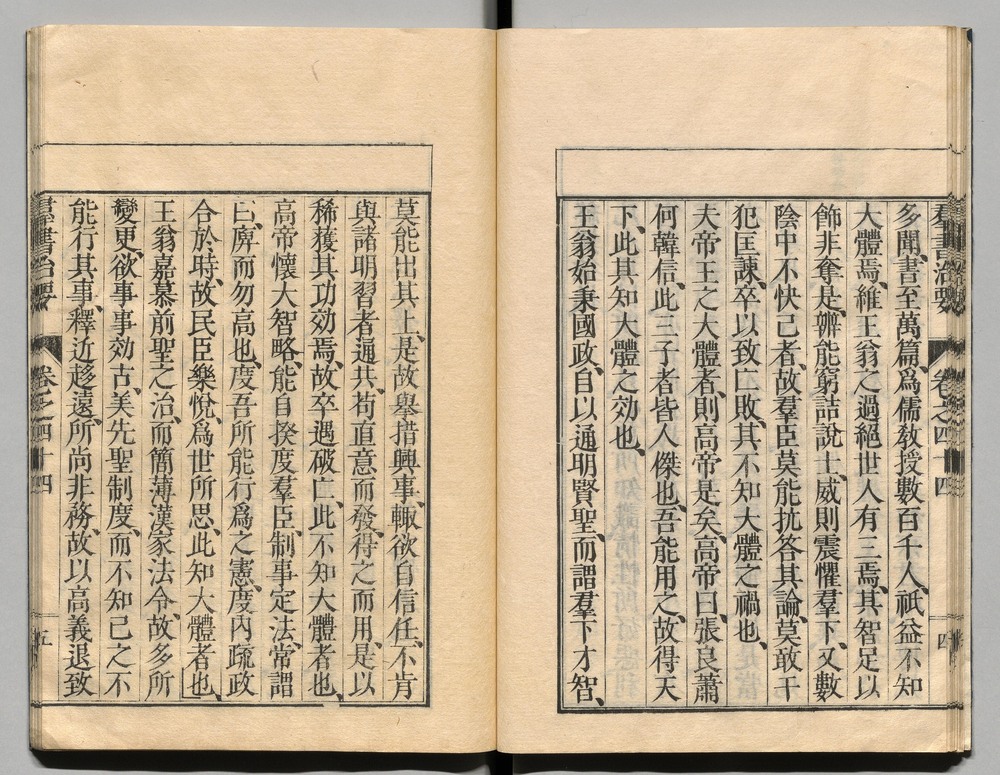 羣書治要 卷之四十四 四
多聞、書至萬篇、爲儒敎授數百千人、祇益不知
大體焉、維王翁之過絕世人有三焉、其智足以
飾非奪是、辨能窮詰說士、威則震懼羣下、又數
陰中不快己者、故羣臣莫能抗答其論、莫敢干
犯匡諫、卒以致亡敗、其不知大體之禍也、
夫帝王之大體者、則高帝是矣、高帝曰、張良蕭
何韓信、此三子者皆人傑也、吾能用之、故得天
下、此其知大體之効也、
王翁始秉國政、自以通明賢聖、而謂羣下才智、
莫能出其上、是故舉措興事、輙欲自信任、不肯
與諸明習者通共、苟直意而發、得之而用、是以
稀獲其功効焉、故卒遇破亡、此不知大體者也、
高帝懷大智略、能自揆度羣臣、制事定法、常謂
曰、庳而勿高也、度吾所能行爲之憲、度內疏政
合於時、故民臣樂悅、爲世所思、此知大體者也、
王翁嘉慕前聖之治、而簡薄漢家法令、故多所
變更、欲事事効古、美先聖制度、而不知己之不
能行其事、釋近趍遠、所尚非務、故以高義退致
羣書治要 卷之四十四 五